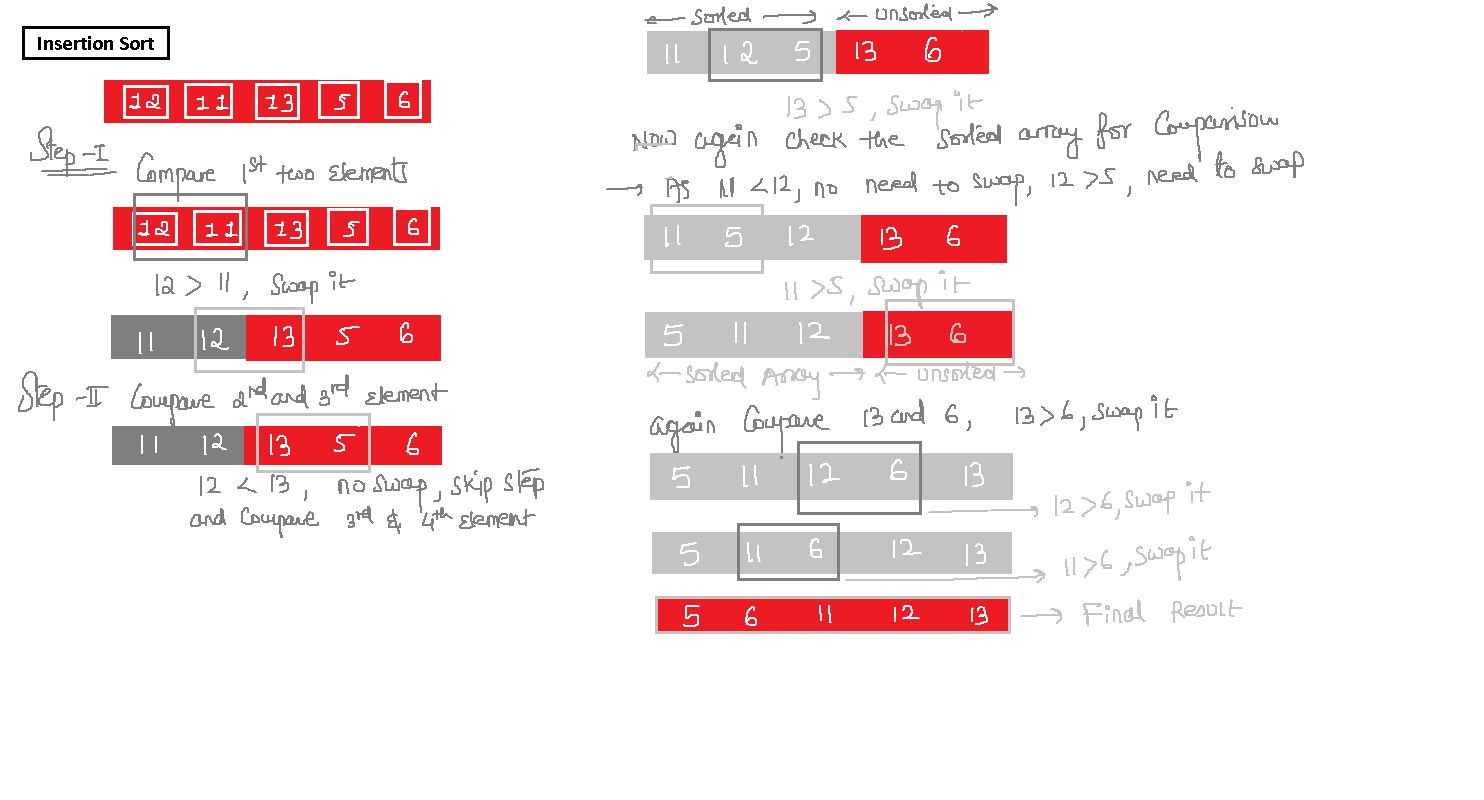 Insertion Sort
12 11 13 5 6
Step-I
Compare 1st two Elements
12 11 13 5 6
12 > 11, Swap it
11 12 13 5 6
Step-II Compare 2rd and 3rd Element
11 12 13 5 6
12 < 13, no swap, skip step
and Compare 3rd & 4th Element
← Sorted → ← unsorted →
11 12 5 13 6
13 > 5, Swap it
Now again check the sorted array for Comparison
→ As 11 < 12, no need to swap, 12 > 5, need to swap
11 5 12 13 6
11 > 5, swap it
5 11 12 13 6
← Sorted Array → ← unsorted →
again Compare 13 and 6, 13 > 6, swap it
5 11 12 6 13
→ 12 > 6, swap it
5 11 6 12 13
→ 11 > 6, Swap it
5 6 11 12 13 → Final Result